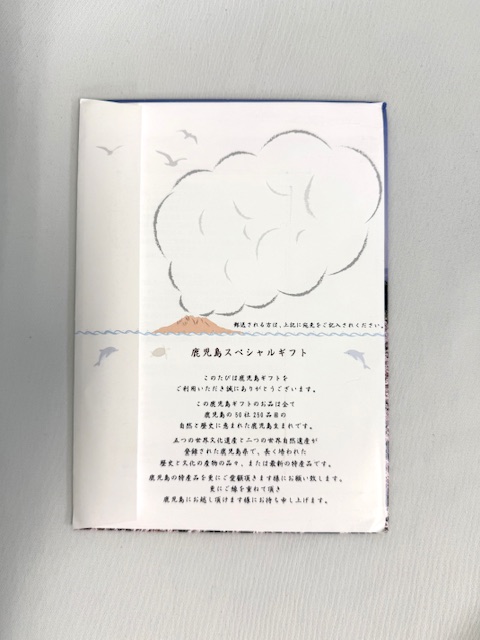 郵送される方は、上記に宛先をご記入されください。
鹿児島スペシャルギフト
このたびは鹿児島ギフトを
ご利用いただき誠にありがとうございます。
この鹿児島ギフトのお品は全て
鹿児島の50社250品目の
自然と歴史に恵まれた鹿児島生まれです。
五つの世界文化遺産と二つの世界自然遺産が
登録された鹿児島県で、長く培われた
歴史と文化の産物の品々、または最新の特産です。
鹿児島の特産品を更にご愛顧頂きます様にお願い致します。
更にご縁を重ねて頂き
鹿児島にお越し頂けます様にお待ち申し上げます。